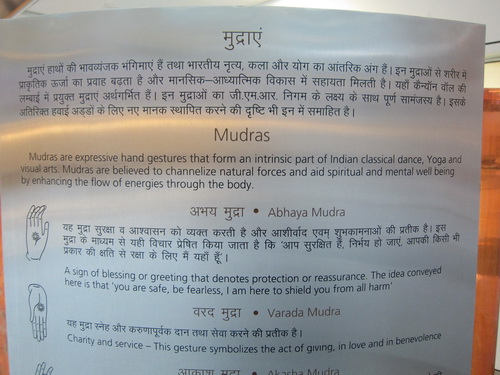 मुद्राएं
मुद्राएं हाथों की भावव्यंजक भंगिमाएं हैं तथा भारतीय नृत्य, कला और योग का आंतरिक अंग है। इन मुद्राओं से शरीर में
प्राकृतिक ऊर्जा का प्रवाह बढ़ता है और मानसिक–आध्यात्मिक विकास में सहायता मिलती है। यहाँ कैन्यॉन वॉल की
लम्बाई में प्रयुक्त मुद्राएं अर्थगर्भित हैं। इन मुद्राओं का जी.एम.आर. निगम के लक्ष्य के साथ पूर्ण सामंजस्य है। इसके
अतिरिक्त हवाई अड्डों के लिए नए मानक स्थापित करने की दृष्टि भी इन में समाहित है।
Mudras
Mudras are expressive hand gestures that form an intrinsic part of Indian classical dance, Yoga and
visual arts. Mudras are believed to channelize natural forces and aid spiritual and mental well being
by enhancing the flow of energies through the body.
अभय मुद्रा • Abhaya Mudra
यह मुद्रा सुरक्षा व आश्वासन को व्यक्त करती है और आशीर्वाद एवम् शुभकामनाओं की प्रतीक है। इस
मुद्रा के माध्यम से यही विचार प्रेषित किया जाता है कि 'आप सुरक्षित हैं, निर्भय हो जाएं, आपकी किसी भी
प्रकार की क्षति से रक्षा के लिए मैं यहाँ हूँ'।
A sign of blessing or greeting that denotes protection or reassurance. The idea conveyed
here is that 'you are safe, be fearless, I am here to shield you from all harm'
वरद मुद्रा • Varada Mudra
यह मुद्रा स्नेह और करुणापूर्वक दान तथा सेवा करने की प्रतीक है।
Charity and service – This gesture symbolizes the act of giving, in love and in benevolence
आकाश मुद्रा • Akasha Mudra